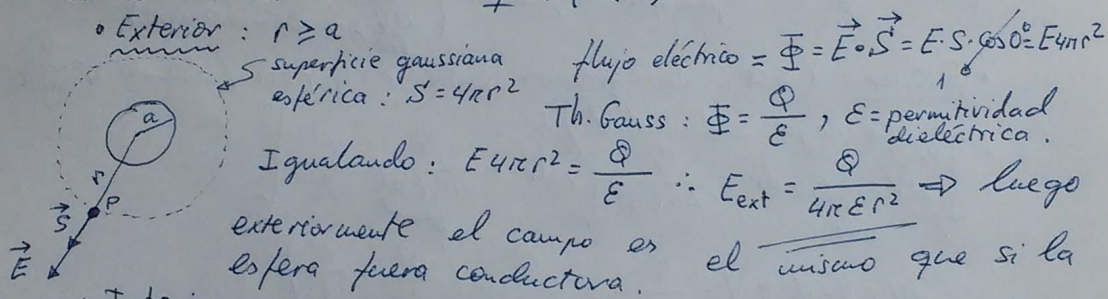 • Exterior : r ≥ a
superficie gaussiana
esférica : S = 4πr²
flujo eléctrico = Φ = E⃗ • S⃗ = E·S·cos 0° = E4πr²
1
Th. Gauss : Φ = Q/ε , ε = permitividad
dieléctrica.
a
r
P
S⃗
E⃗
Igualando : E4πr² = Q/ε ∴ E_ext = Q/(4πεr²) ⇒ luego
exteriormente el campo es el mismo que si la
esfera fuera conductora.